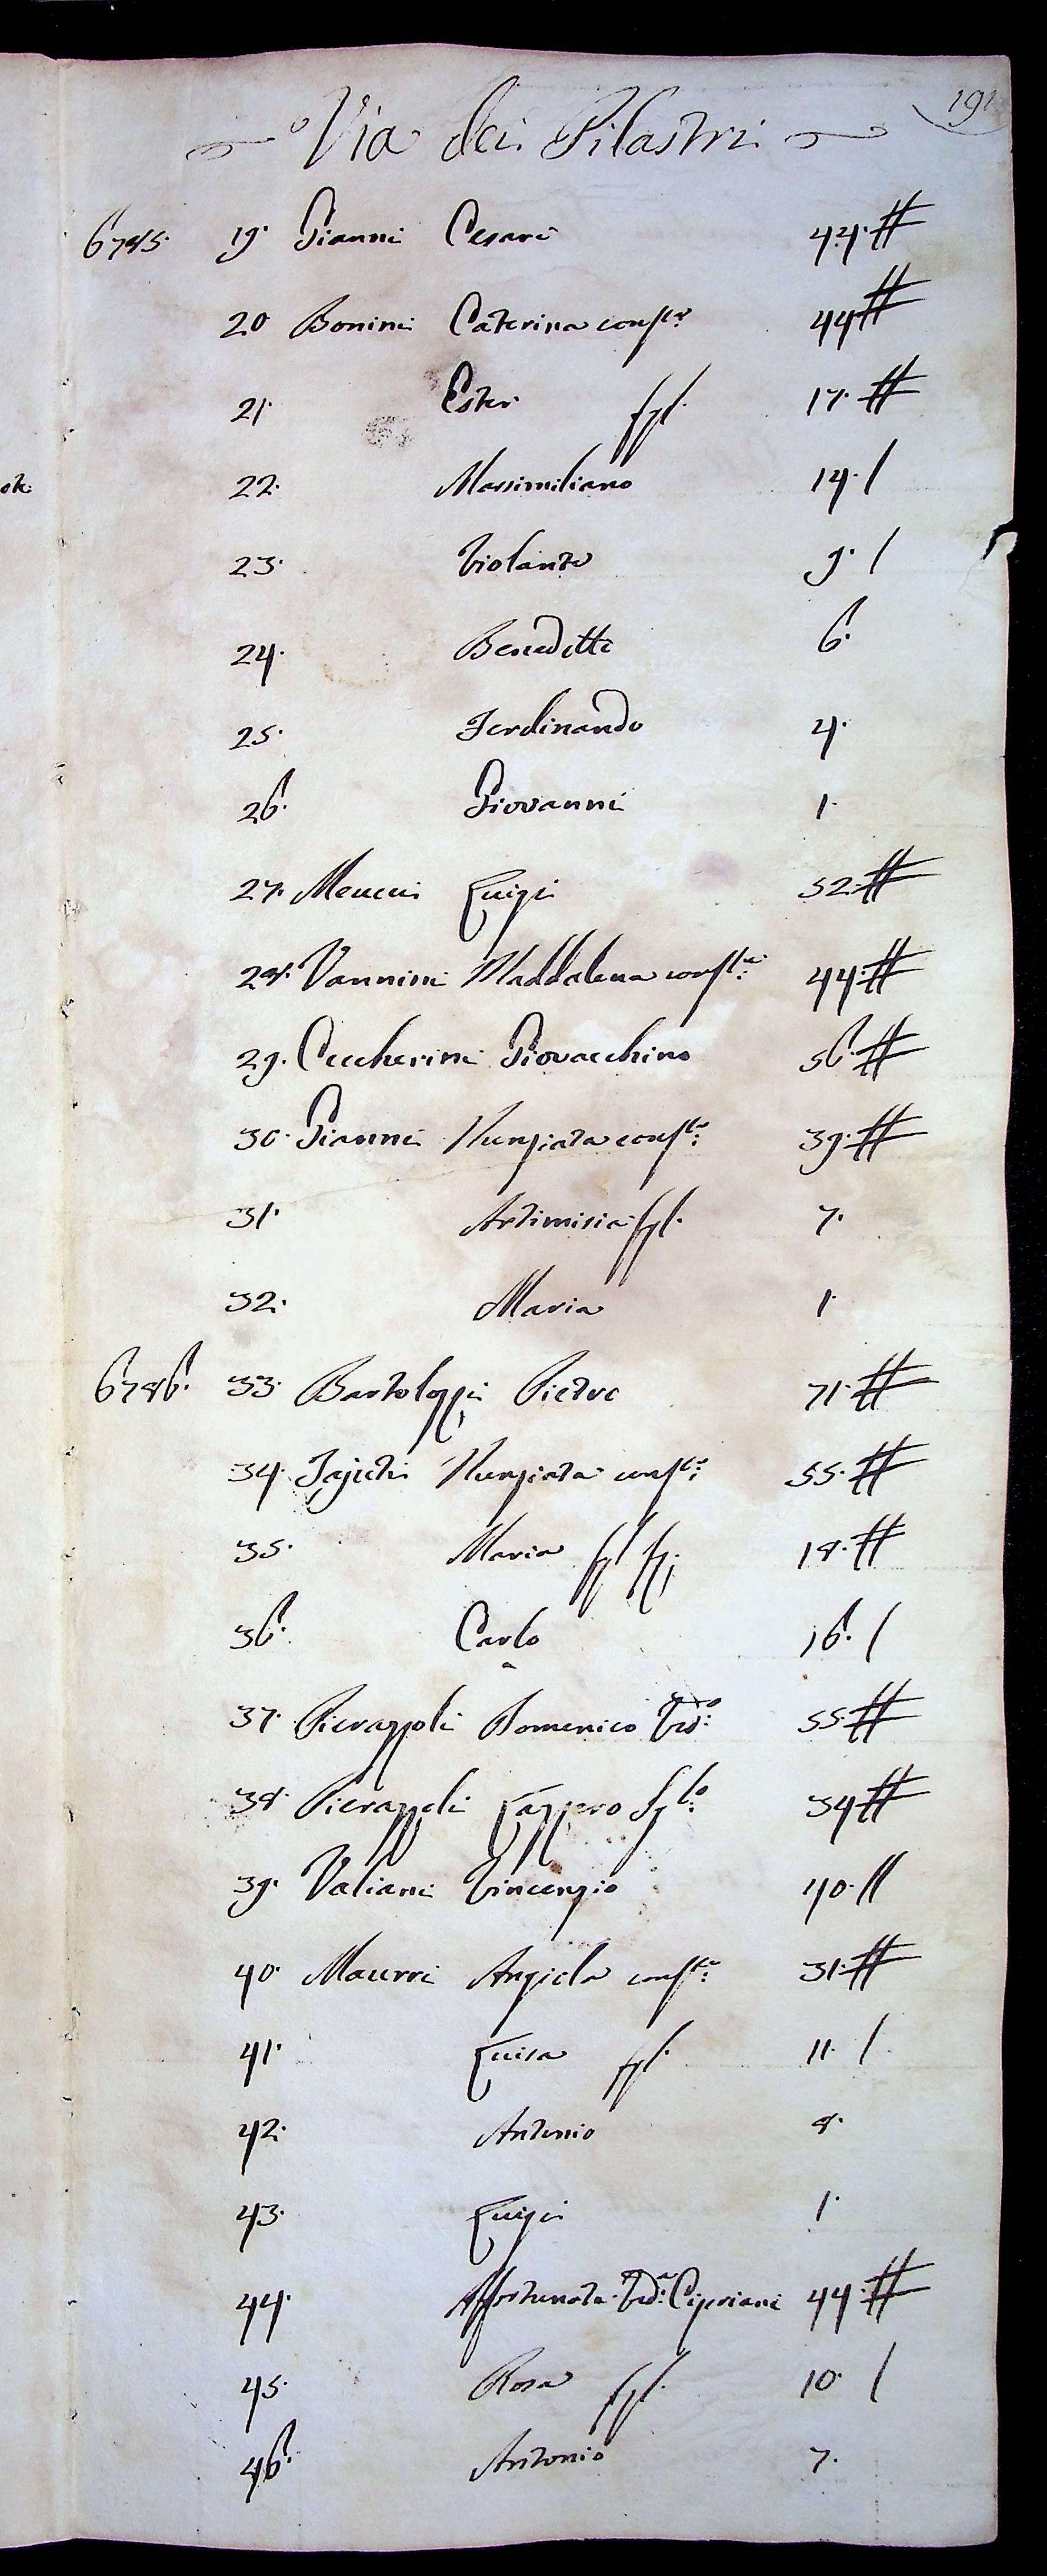 191
Via dei Pilastri
6785. 19. Gianni Cesare 44. #
20 Bonini Caterina conste 44 #
21. Ester ffgl. 17. #
22. Massimiliano 14. /
23. Violante 9. /
24. Benedetto 6.
25. Ferdinando 4.
26. Giovanni 1.
27. Meucci Luigi 52. #
28. Vannini Maddalena conste: 44. #
29. Ceccherini Giovacchino 56. #
30. Gianni Nunziata conste: 39. #
31. Artimisia ffgl. 7.
32. Maria 1.
6786. 33. Bartolozzi Pietro 71. #
34. Nunziata conste: 55. #
35. Maria 18. #
36. Carlo 16. /
37. Pierazzoli Domenico Vedo: 55. #
38. Pierazzoli Lazzero Fglo: 34 #
39. Valiani Vincenzio 40. //
40. Maurri Angiola conste: 31. #
41. Luisa ffgl. 11. /
42. Antonio 8.
43. Luigi 1.
44. Affortunata Veda: Cipriani 44. #
45. Rosa ffgl. 10. /
46. Antonio 7.